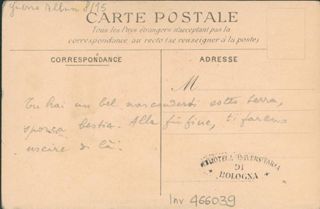 Guerra Album 8/15
CARTE POSTALE
Tous les Pays étrangers n'acceptent pas la
correspondance au recto (se renseigner à la poste)
CORRESPONDANCE
ADRESSE
M
Tu hai un bel nasconderti sotto terra,
sporca bestia. Alla fin fine, ti faremo
uscire di là!
BIBLIOTECA UNIVERSITARIA
DI
BOLOGNA
Inv 466039